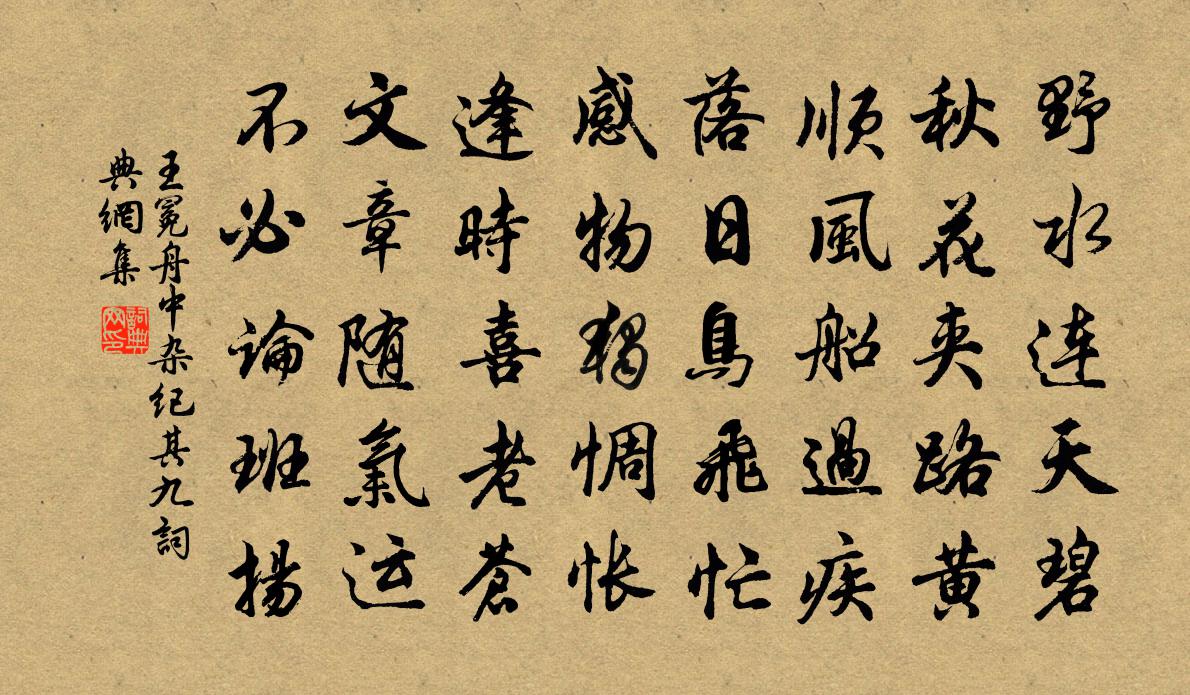 野水连天碧
秋花夹路黄
順風船過疾
落日鳥飛忙
感物獨惆怅
逢時喜老蒼
文章随氣运
不必論班揚
王冕舟中杂纪其九詞
典網集
詞典
网印